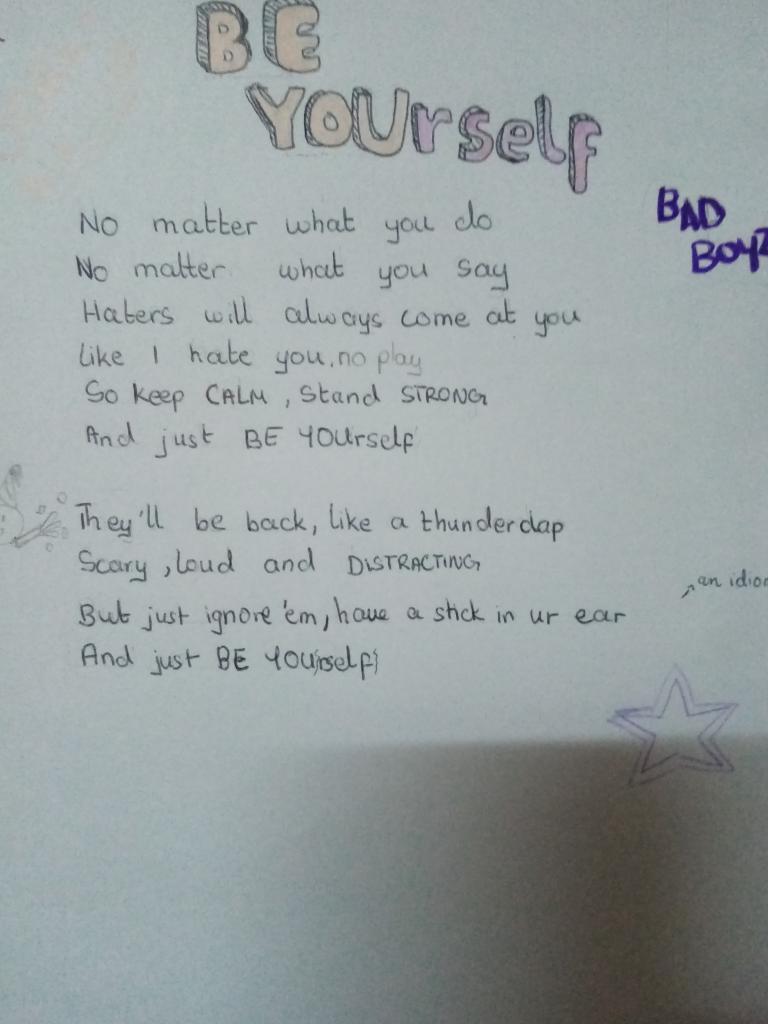 BE
YOUrself
BAD
BOYZ
No matter what you do
No matter what you say
Haters will always come at you
Like I hate you, no play
So keep CALM, Stand STRONG
And just BE YOUrself
They'll be back, like a thunderclap
Scary, loud and DISTRACTING
an idiom
But just ignore 'em, have a stick in ur ear
And just BE YOUrself